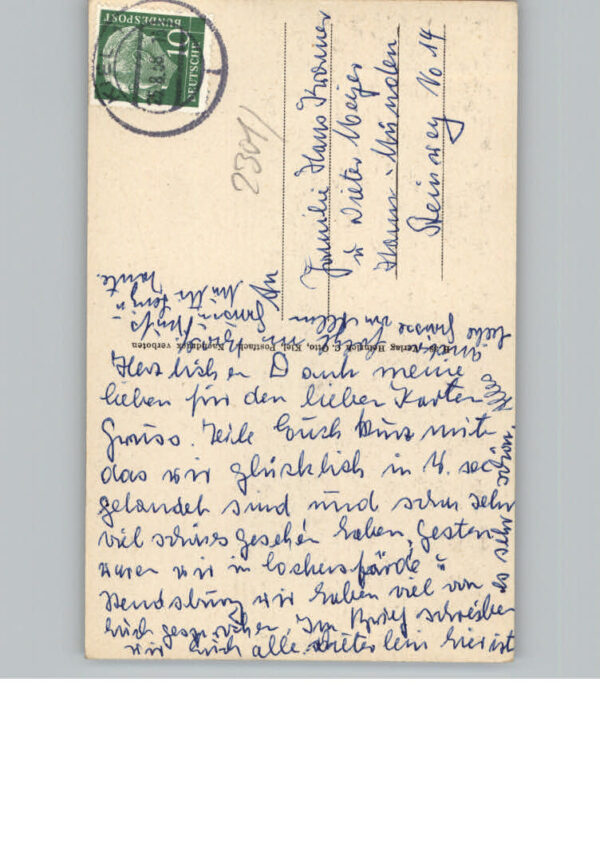 DEUTSCHE
BUNDESPOST
10
2301/
An
Familie Hans Kramer
u Dieter Meyer
Hann. Münden
Steinweg No 14
Verlag Heinrich P. Otto, Kiel, Postfach, Nachdruck verboten
Herzlichen Dank meine
lieben für den lieben Karten
Gruss. Teile Euch kurz mit
das wir glücklich in
gelandet sind und schon sehr
viel schönes gesehen haben, Gestern
waren wir in u
Rendsburg wir haben viel von
Euch gesprochen. Im Brief schreiben
wir Euch alle. Dieterlein hier ist
es sehr
Liebe Grüsse